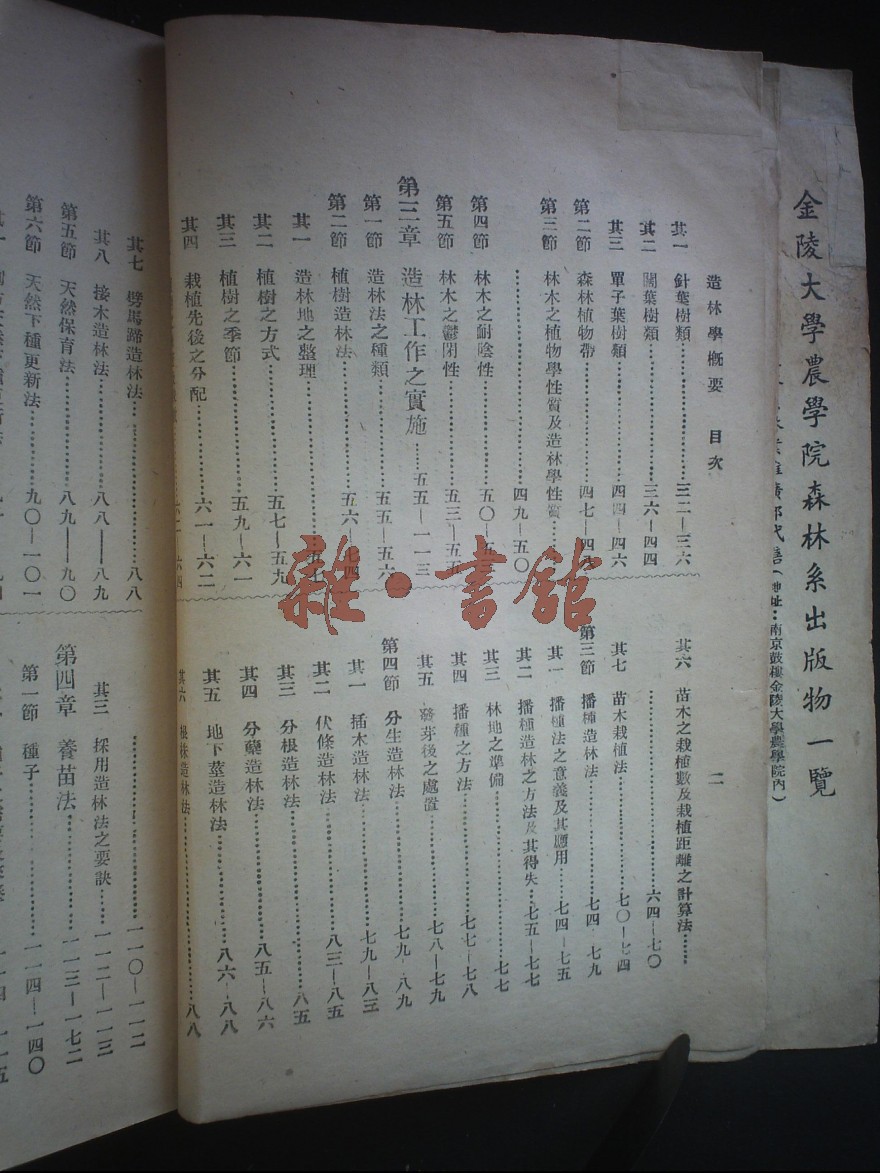 金陵大學農學院森林系出版物一覽
南京鼓樓金陵大學農學院內）
造林學概要　目次　二
其一　針葉樹類……三二—三六
其二　闊葉樹類……三六—四四
其三　單子葉樹類……四四—四六
第二節　森林植物帶……四七—四
第三節　林木之植物學性質及造林學性質
……四九—五〇
第四節　林木之耐陰性……五〇—五
第五節　林木之鬱閉性……五三—五五
第三章　造林工作之實施……五五—一一三
第一節　造林法之種類……五五—五六
第二節　植樹造林法……五六—七四
其一　造林地之整理……五七
其二　植樹之方式……五七—五九
其三　植樹之季節……五九—六一
其四　栽植先後之分配……六一—六二
其六　苗木之栽植數及栽植距離之計算法……
……六四—七〇
其七　苗木栽植法……七〇—七四
第三節　播種造林法……七四—七九
其一　播種法之意義及其應用……七四—七五
其二　播種造林之方法及其得失……七五—七七
其三　林地之準備……七七
其四　播種之方法……七七—七八
其五　發芽後之處置……七八—七九
第四節　分生造林法……七九—八九
其一　插木造林法……七九—八三
其二　伏條造林法……八三—八五
其三　分根造林法……八五
其四　分蘗造林法……八五—八六
其五　地下莖造林法……八六—八八
其六　根株造林法……八八
其七　劈馬蹄造林法……八八
其八　接木造林法……八八—八九
第五節　天然保育法……八九—九〇
第六節　天然下種更新法……九〇—一〇一
……一一〇—一一二
其三　採用造林法之要訣……一一二—一一三
第四章　養苗法……一一三—一七二
第一節　種子……一一四—一四〇
雜·書館